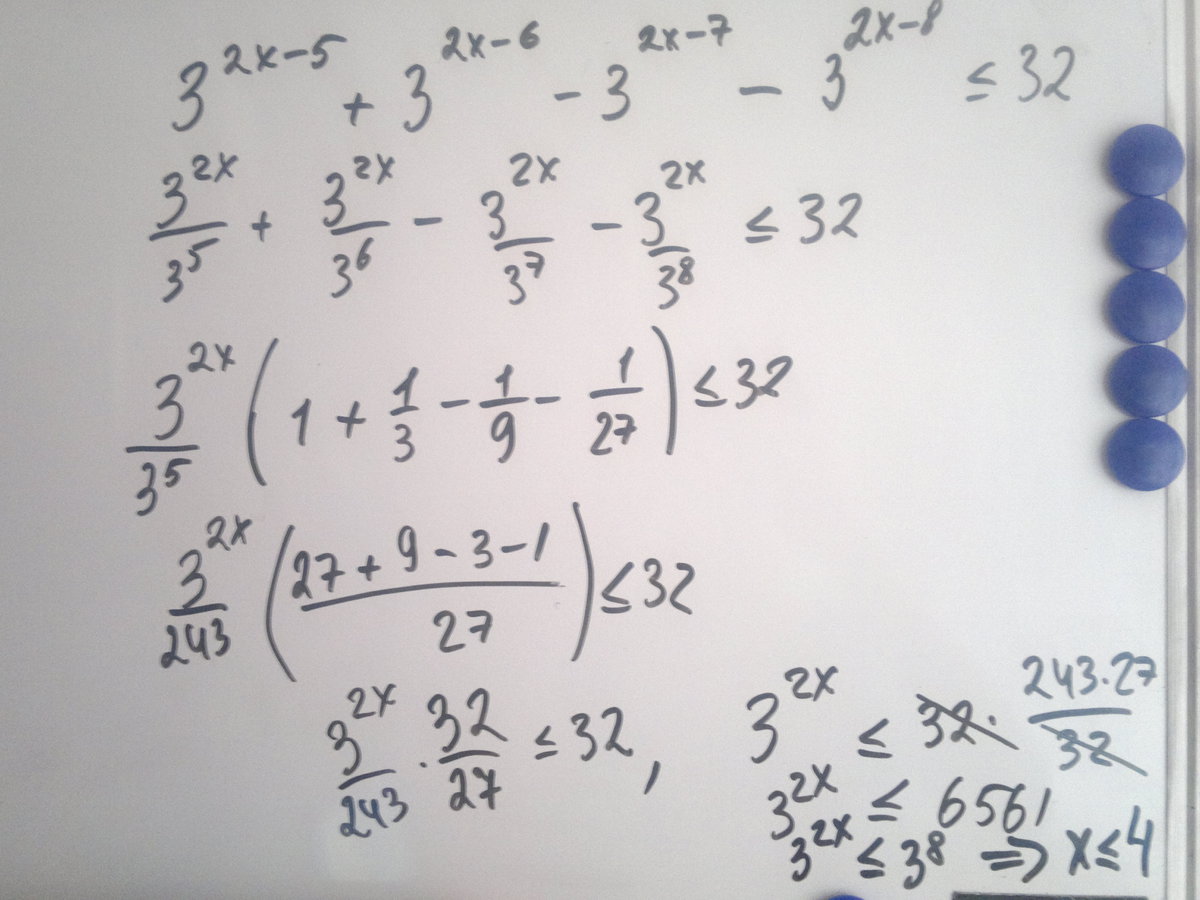 3^{2x-5} + 3^{2x-6} - 3^{2x-7} - 3^{2x-8} ≤ 32
\frac{3^{2x}}{3^5} + \frac{3^{2x}}{3^6} - \frac{3^{2x}}{3^7} - \frac{3^{2x}}{3^8} ≤ 32
\frac{3^{2x}}{3^5} (1 + \frac{1}{3} - \frac{1}{9} - \frac{1}{27}) ≤ 32
\frac{3^{2x}}{243} (\frac{27+9-3-1}{27}) ≤ 32
\frac{3^{2x}}{243} · \frac{32}{27} ≤ 32, 3^{2x} ≤ 32 · \frac{243·27}{32}
3^{2x} ≤ 6561
3^{2x} ≤ 3^8 ⇒ x ≤ 4